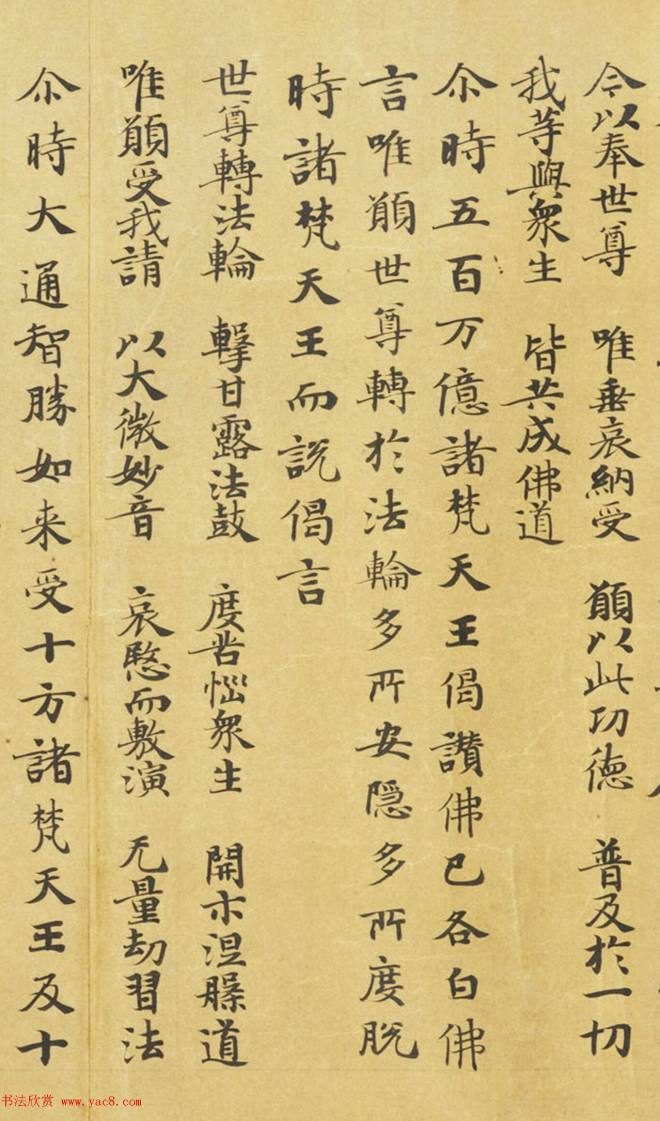 今以奉世尊 唯垂哀納受 願以此功德 普及於一切
我等與衆生 皆共成佛道
尒時五百万億諸梵天王偈讚佛已各白佛
言唯願世尊轉於法輪多所安隱多所度脫
時諸梵天王而說偈言
世尊轉法輪 擊甘露法鼓 度苦惱衆生 開示涅槃道
唯願受我請 以大微妙音 哀愍而敷演 无量劫習法
尒時大通智勝如来受十方諸梵天王及十
书法欣赏 www.yac8.com